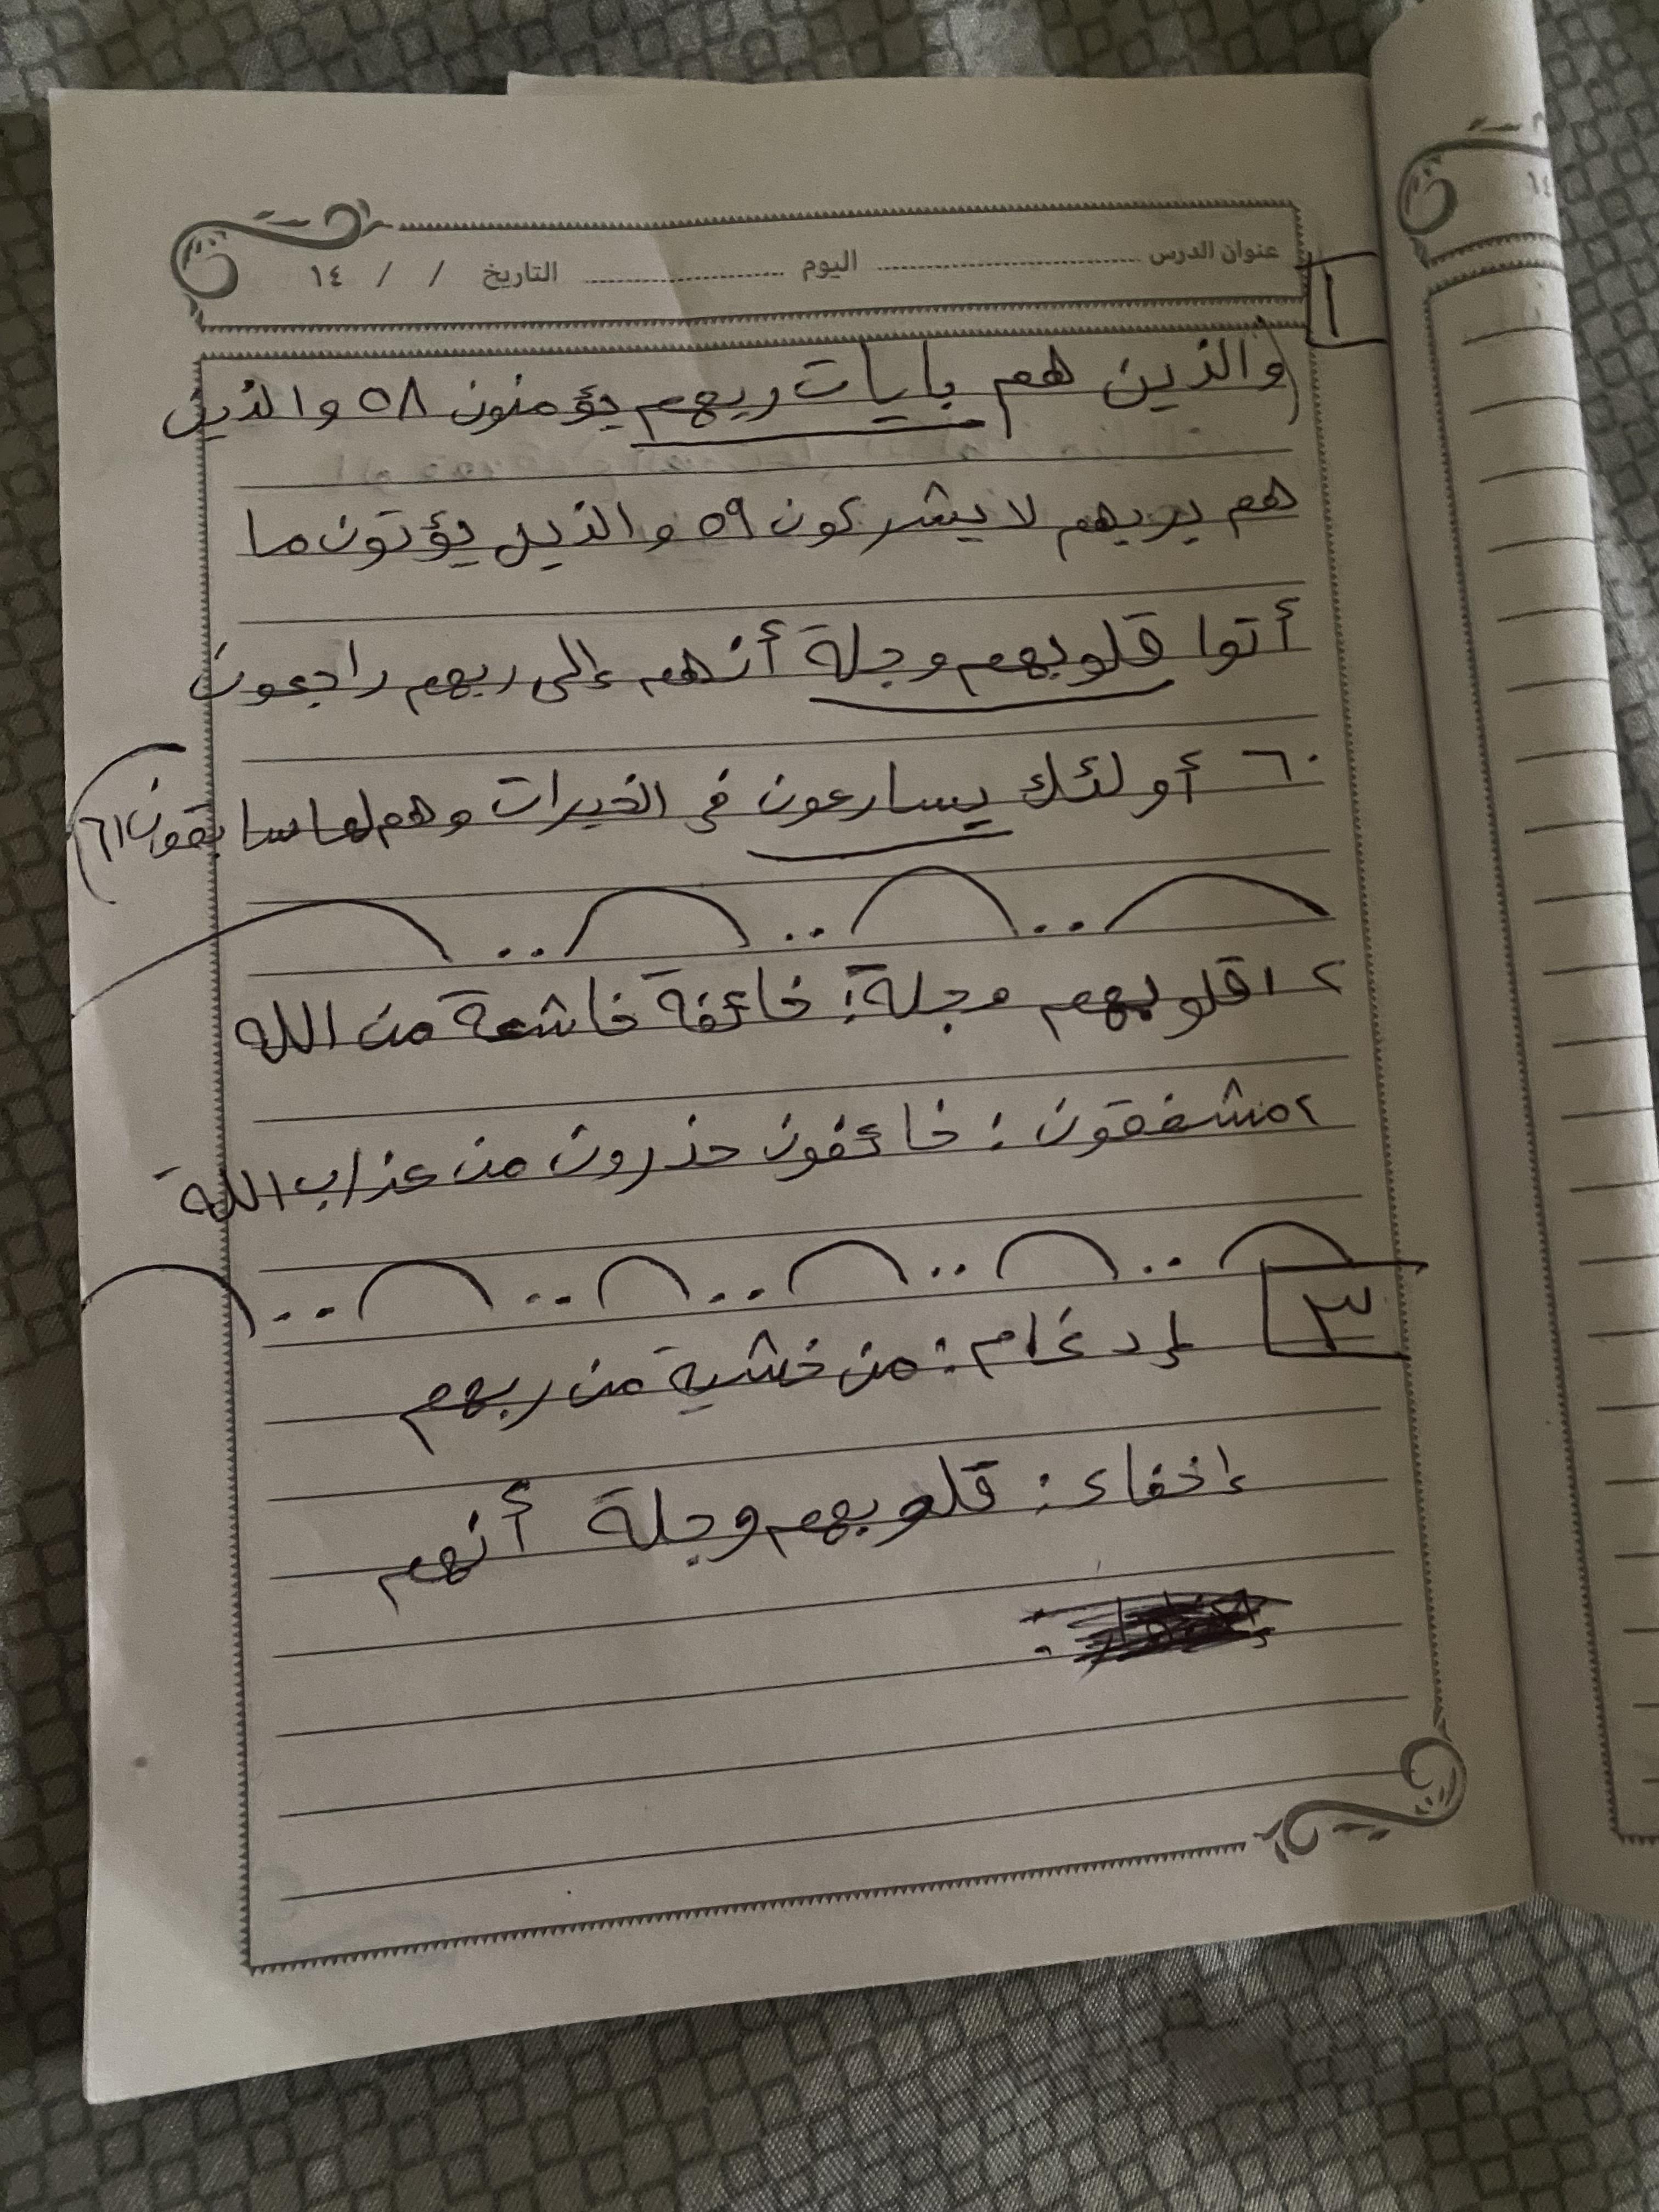 عنوان الدرس ........ اليوم ........ التاريخ / / ١٤
١
(والذين هم بايات ربهم يؤمنون ٥٨ والذين
هم بربهم لا يشركون ٥٩ والذين يؤتون ما
أتوا قلوبهم وجلة أنهم إلى ربهم راجعون
٦٠ أولئك يسارعون في الخيرات وهم لها سابقون ٦١)
٢ ١ قلوبهم وجلة: خائفة خاشعة من الله
٢ مشفقون: خائفون حذرون من عذاب اللة
٣
إدغام: من خشية من ربهم
إخفاء: قلوبهم وجلة أنهم